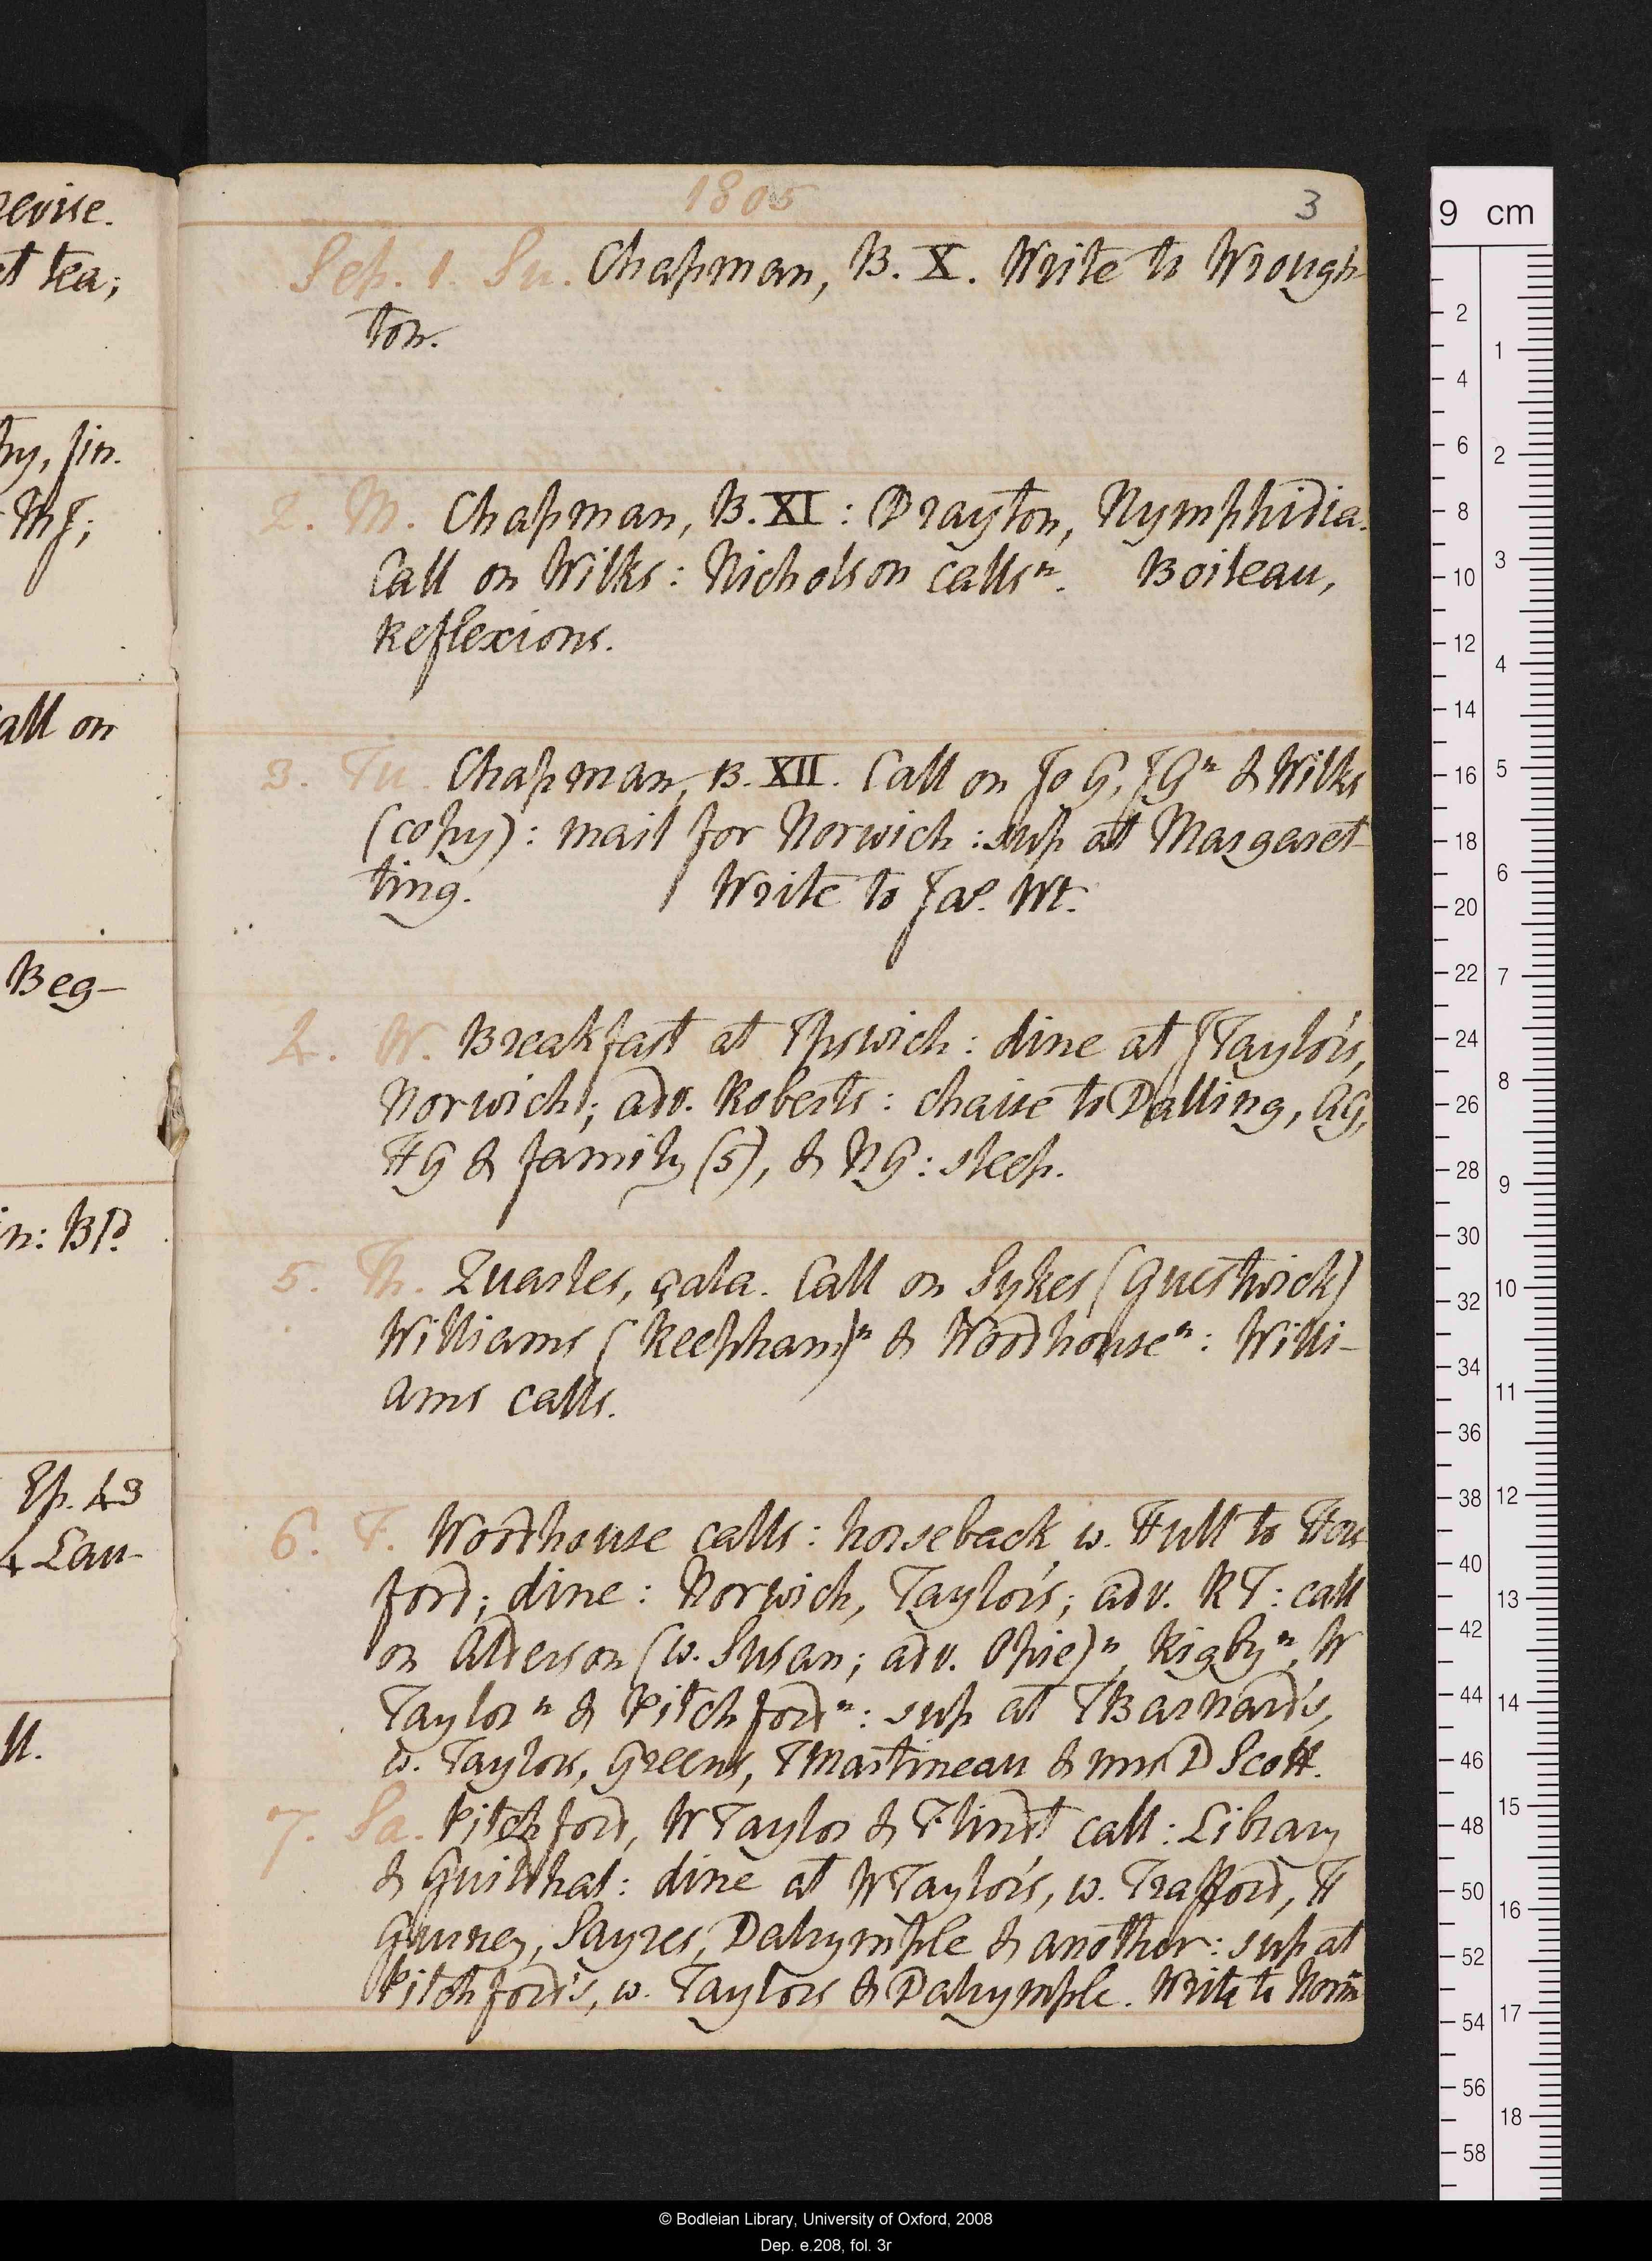 revise.
at tea;
fin.
all on
Beg-
Ep. 43
4 Lau-
ll.
1805
3
Sep. 1. Su. Chapman, B. X. Write to Wrough-
ton.
2. M. Chapman, B. XI: Drayton, Nymphidia.
Call on Wilks: Nicholson callsⁿ. Boileau,
Reflexions.
3. Tu. Chapman, B. XII. Call on Jo G, JGⁿ & Wilks
(copy): mail for Norwich: sup at Margaret-
ting. Write to Jas. Wt.
4. W. Breakfast at Ipswich: dine at JTaylor's,
Norwich; adv. Roberts: chaise to Dalling, AG,
HG & family (5), & NG: sleep.
5. Th. Quarles, çala. Call on Sykes (Guestwick)
Williams (Reepham)ⁿ & Woodhouseⁿ: Willi-
ams calls.
6. F. Woodhouse calls: horseback w. Hull to Hou
ford; dine: Norwich, Taylor's; adv. RT: call
on Alderson (w. Susan; adv. Opie)ⁿ, Rigbyⁿ, W
Taylorⁿ & Pitchfordⁿ: sup at TBarnard's,
w. Taylors, Greens, TMartineau & mrs D Scott.
7. Sa. Pitchford, WTaylor & Flindt call: Library
& Guildhal: dine at WTaylor's, w. Trafford, H
Gurney, Sayres, Dalrymple & another: sup at
Pitchford's, w. Taylors & Dalrymple. Write to
9 cm
2
4
6
8
10
12
14
16
18
20
22
24
26
28
30
32
34
36
38
40
42
44
46
48
50
52
54
56
58
1
2
3
4
5
6
7
8
9
10
11
12
13
14
15
16
17
18
© Bodleian Library, University of Oxford, 2008
Dep. e.208, fol. 3r